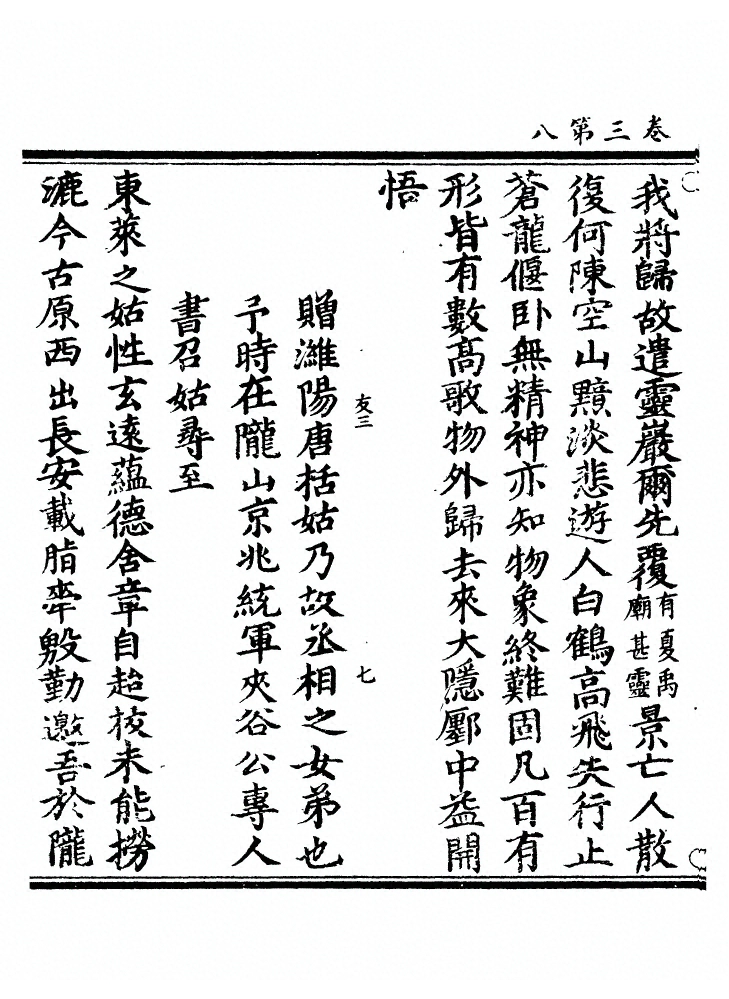 卷三第八
我將歸故遣靈巖爾先覆有夏禹廟甚靈景亡人散
復何陳空山黯淡悲遊人白鶴高飛失行止
蒼龍偃卧無精神亦知物象終難固凡百有
形皆有數高歌物外歸去來大隱鄽中益開
悟
友三
七
贈濰陽唐括姑乃故丞相之女弟也
予時在隴山京兆統軍夾谷公專人
書召姑尋至
東萊之姑性玄遠蘊德含章自超拔未能撈
漉今古原西出長安載脂舝殷勤邀吾於隴